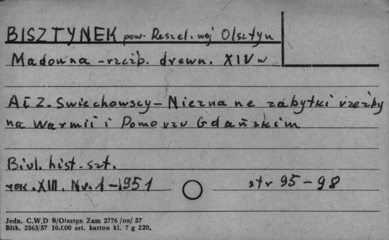 BISZTYNEK pow. Reszel. woj Olsztyn
Madonna - rzeźb. drewn. XIV w
A i Z. Swiechowscy - Nieznane zabytki rzeźby
na Warmii i Pomorzu Gdańskim
Biul. hist. szt.
rok. XIII. Nr. 1 - 1951 str 95 - 98
Jedn. C.W.D 8/Olsztyn Zam 2776 /on/ 57
Bltk. 2563/57 10.000 szt. karton kl. 7 g 220.